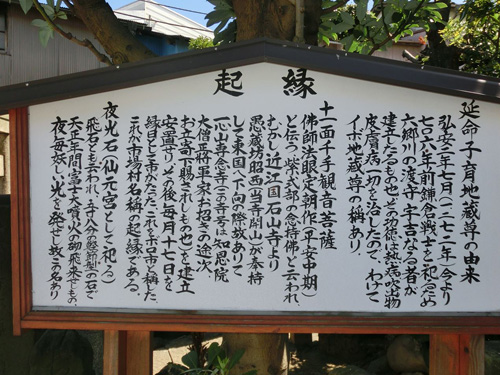 縁起
延命子育地蔵尊の由来
弘安二年七月(一二七二年)今より
七〇六年前鎌倉戦士を祀るため
六郷川の渡守 宇吉なる者が
建立したるもの也 その外佛は熱病吹出物
皮膚病一切を治したので、わけて
イボ地蔵尊の称あり。
十一面千手観音菩薩
佛師法眼定朝作(平安中期)
と伝う紫式部の念持佛と云われ、
むかし近江国石山寺より
恩蔵坊昭西(当寺開山)が奉持
して東国へ下向の際故ありて
一心山専念寺(この寺号は知恩院
大僧正将軍家お招きの途次
お立寄下賜されしもの也)を建立
安置す。その後毎月十七日を
縁日と定めたたこれを市の宮と称した
これ八市場村名称の起縁である。
夜光石(仙元宮として祀る)
飛石とも云われ、五寸八分の鰹節型の石で
天正年間富士大噴火の砌飛来したもの。
夜毎妖しい光を発せし故この名あり